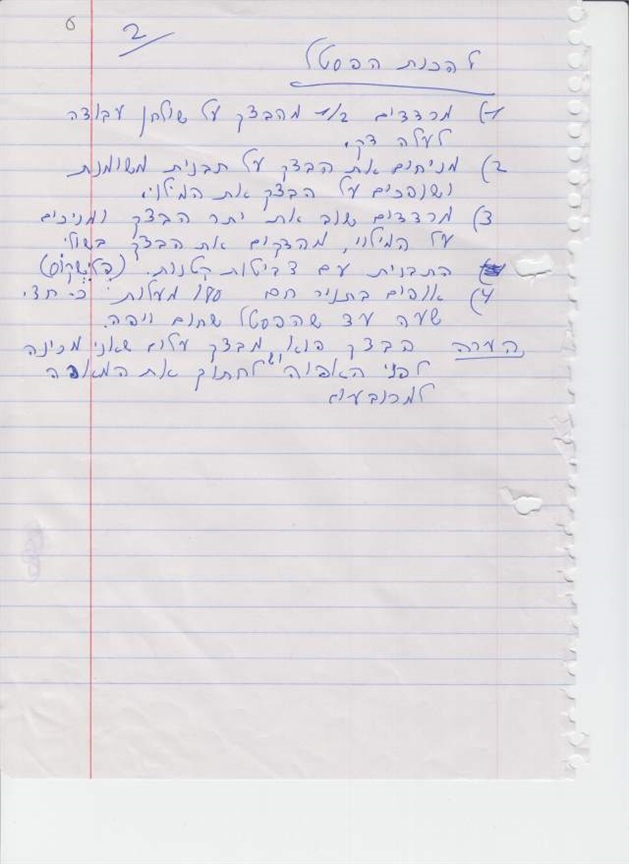 6
2
להכנת הפסטל
1) מרדדים 1/2 מהבצק על שולחן עבודה
לעלה דק.
2) מניחים את הבצק על תבנית משומנת
ושופכים על הבצק את המילוי.
3) מרדדים שוב את יתר הבצק ומניחים
על המילוי, מהדקים את הבצק בשולי
התבנית עם צביטות קטנות.
4) אופים בתניר חם 180 מעלות כ- חצי
שעה עד שהפסטל שחום ויפה.
הערה הבצק הוא מבצק עלים שאני מכינה
לפני האפוה יש לחתוך את המאפה
למרובעים